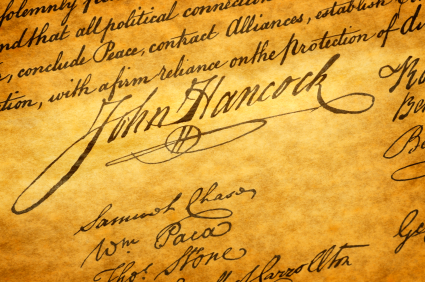 solemnly
and that all political connection
conclude Peace, contract Alliances, establish
tion, with a firm reliance on the protection of di
John Hancock
Samuel Chase
Wm Paca
Thos Stone
Carrollton